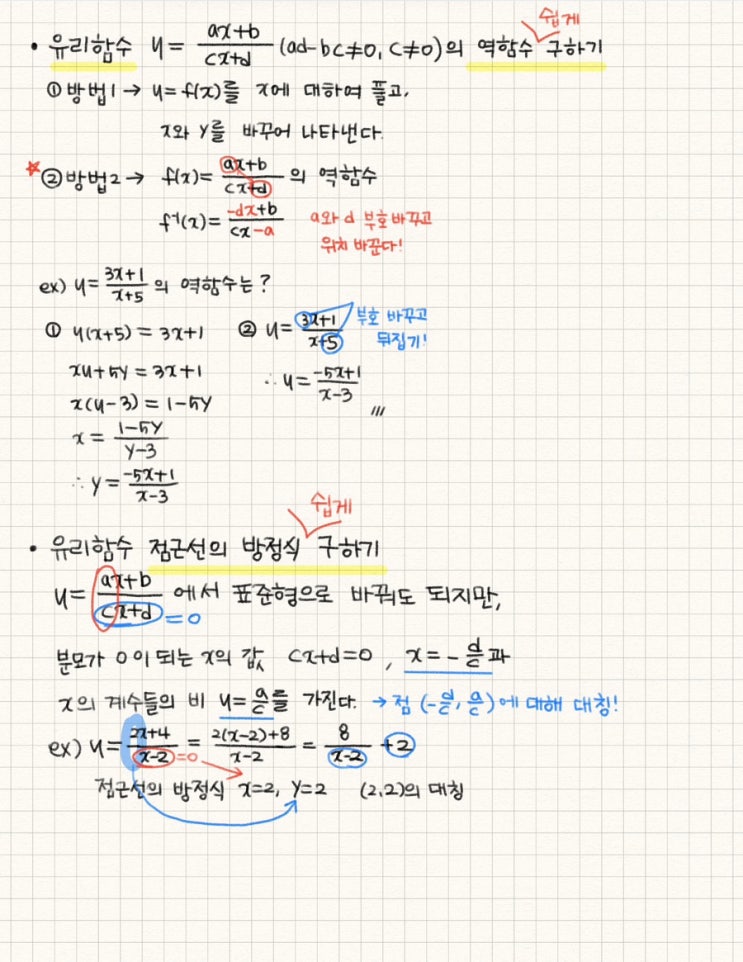 쉽게
• 유리함수 y = ax+b/cx+d (ad-bc≠0, c≠0)의 역함수 구하기
① 방법1 → y=f(x)를 x에 대하여 풀고,
x와 y를 바꾸어 나타낸다.
★ ② 방법2 → f(x)= ax+b/cx+d 의 역함수
f⁻¹(x)= -dx+b/cx-a a와 d 부호 바꾸고
위치 바꾼다!
ex) y= 3x+1/x+5 의 역함수는?
① y(x+5) = 3x+1
xy+5y = 3x+1
x(y-3) = 1-5y
x = 1-5y/y-3
∴ y = -5x+1/x-3
② y= 3x+1/x+5 부호 바꾸고
뒤집기!
∴ y= -5x+1/x-3 ///
쉽게
• 유리함수 점근선의 방정식 구하기
y= ax+b/cx+d =0 에서 표준형으로 바꿔도 되지만,
분모가 0이 되는 x의 값 cx+d=0 , x = - d/c 과
x의 계수들의 비 y= a/c를 가진다. → 점 (-d/c, a/c)에 대해 대칭!
ex) y= 2x+4/x-2 =0 = 2(x-2)+8/x-2 = 8/x-2 +2
점근선의 방정식 x=2, y=2 (2,2)의 대칭